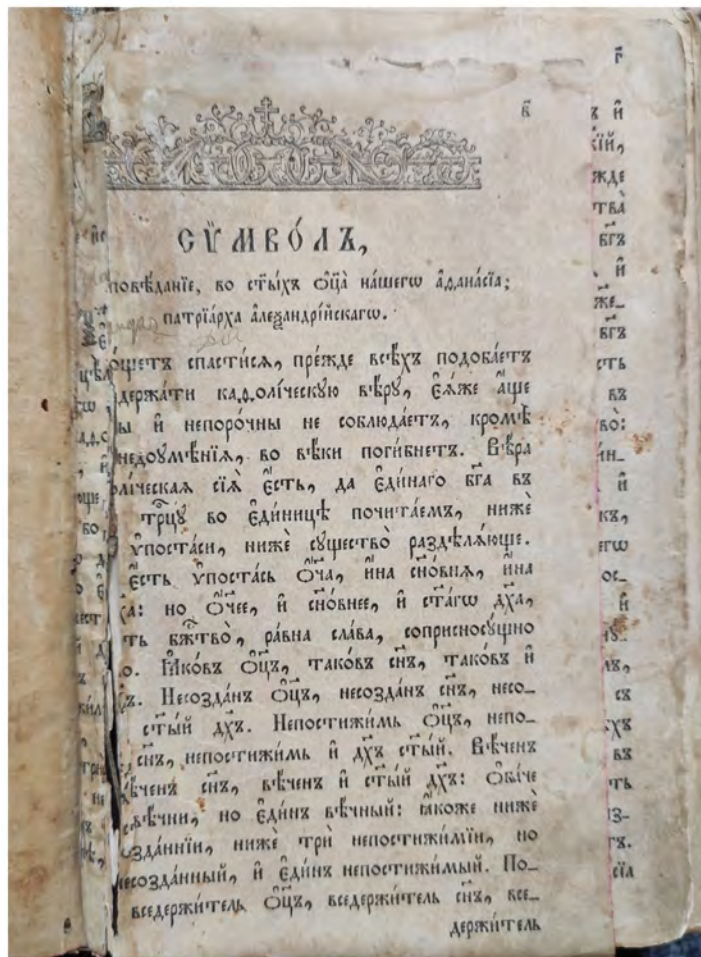 в҃
СѴМВО́ЛЪ,
повѣ́данїе, во ст҃ы́хъ ѻ҆ц҃а̀ на́шегѡ а҆ѳана́сїа;
патрїа́рха а҆леѯандрі́йскагѡ.
о́щетъ спасти́сѧ, пре́жде всѣ́хъ подоба́етъ
держа́ти каѳоли́ческую вѣ́ру, є҆ѧ́же а҆́ще
ы и҆ непоро́чны не соблюда́етъ, кромѣ̀
недоꙋмѣ́нїѧ, во вѣ́ки поги́бнетъ. Вѣ́ра
олі́ческаѧ сїѧ̀ є҆́сть, да є҆ди́наго бг҃а въ
трⷪ҇цꙋ во є҆ди́ницѣ почита́емъ, нижѐ
ѵ҆поста́си, нижѐ сꙋщество̀ раздѣлѧ́юще.
Е҆́сть ѵ҆поста́сь ѻ҆́ч҃а, и҆́на сн҃о́внѧ, и҆́на
ха: но ѻ҆́ч҃ее, и҆ сн҃о́внее, и҆ ст҃а́гѡ дх҃а,
ть бжⷭ҇тво̀, ра́вна сла́ва, соприсносꙋ́щно
о. Ꙗ҆ко́въ ѻ҆ц҃ъ, тако́въ сн҃ъ, тако́въ и҆
хъ. Несозда́нъ ѻ҆ц҃ъ, несозда́нъ сн҃ъ, несо-
ст҃ы́й дх҃ъ. Непостижи́мь ѻ҆ц҃ъ, непо-
сн҃ъ, непостижи́мь и҆ дх҃ъ ст҃ы́й. Вѣ́ченъ
вѣ́ченъ сн҃ъ, вѣ́ченъ и҆ ст҃ы́й дх҃ъ: Ѻ҆ба́че
вѣ́чни, но є҆ди́нъ вѣ́чный: ꙗ҆́коже нижѐ
озда́ннїи, нижѐ трѝ непостижи́мїи, но
несозда́нный, и҆ є҆ди́нъ непостижи́мый. По-
вседержи́тель ѻ҆ц҃ъ, вседержи́тель сн҃ъ, все-
держи́тель
г҃
ъ и҆
кїй,
жде
тва̀
бг҃ъ
и҆
же-
бг҃ъ
сть
въ
во̀:
ин-
и҆
къ,
егѡ
ос-
и҆
нꙋ-
съ
хъ
въ
ть
із-
тъ.
сїа